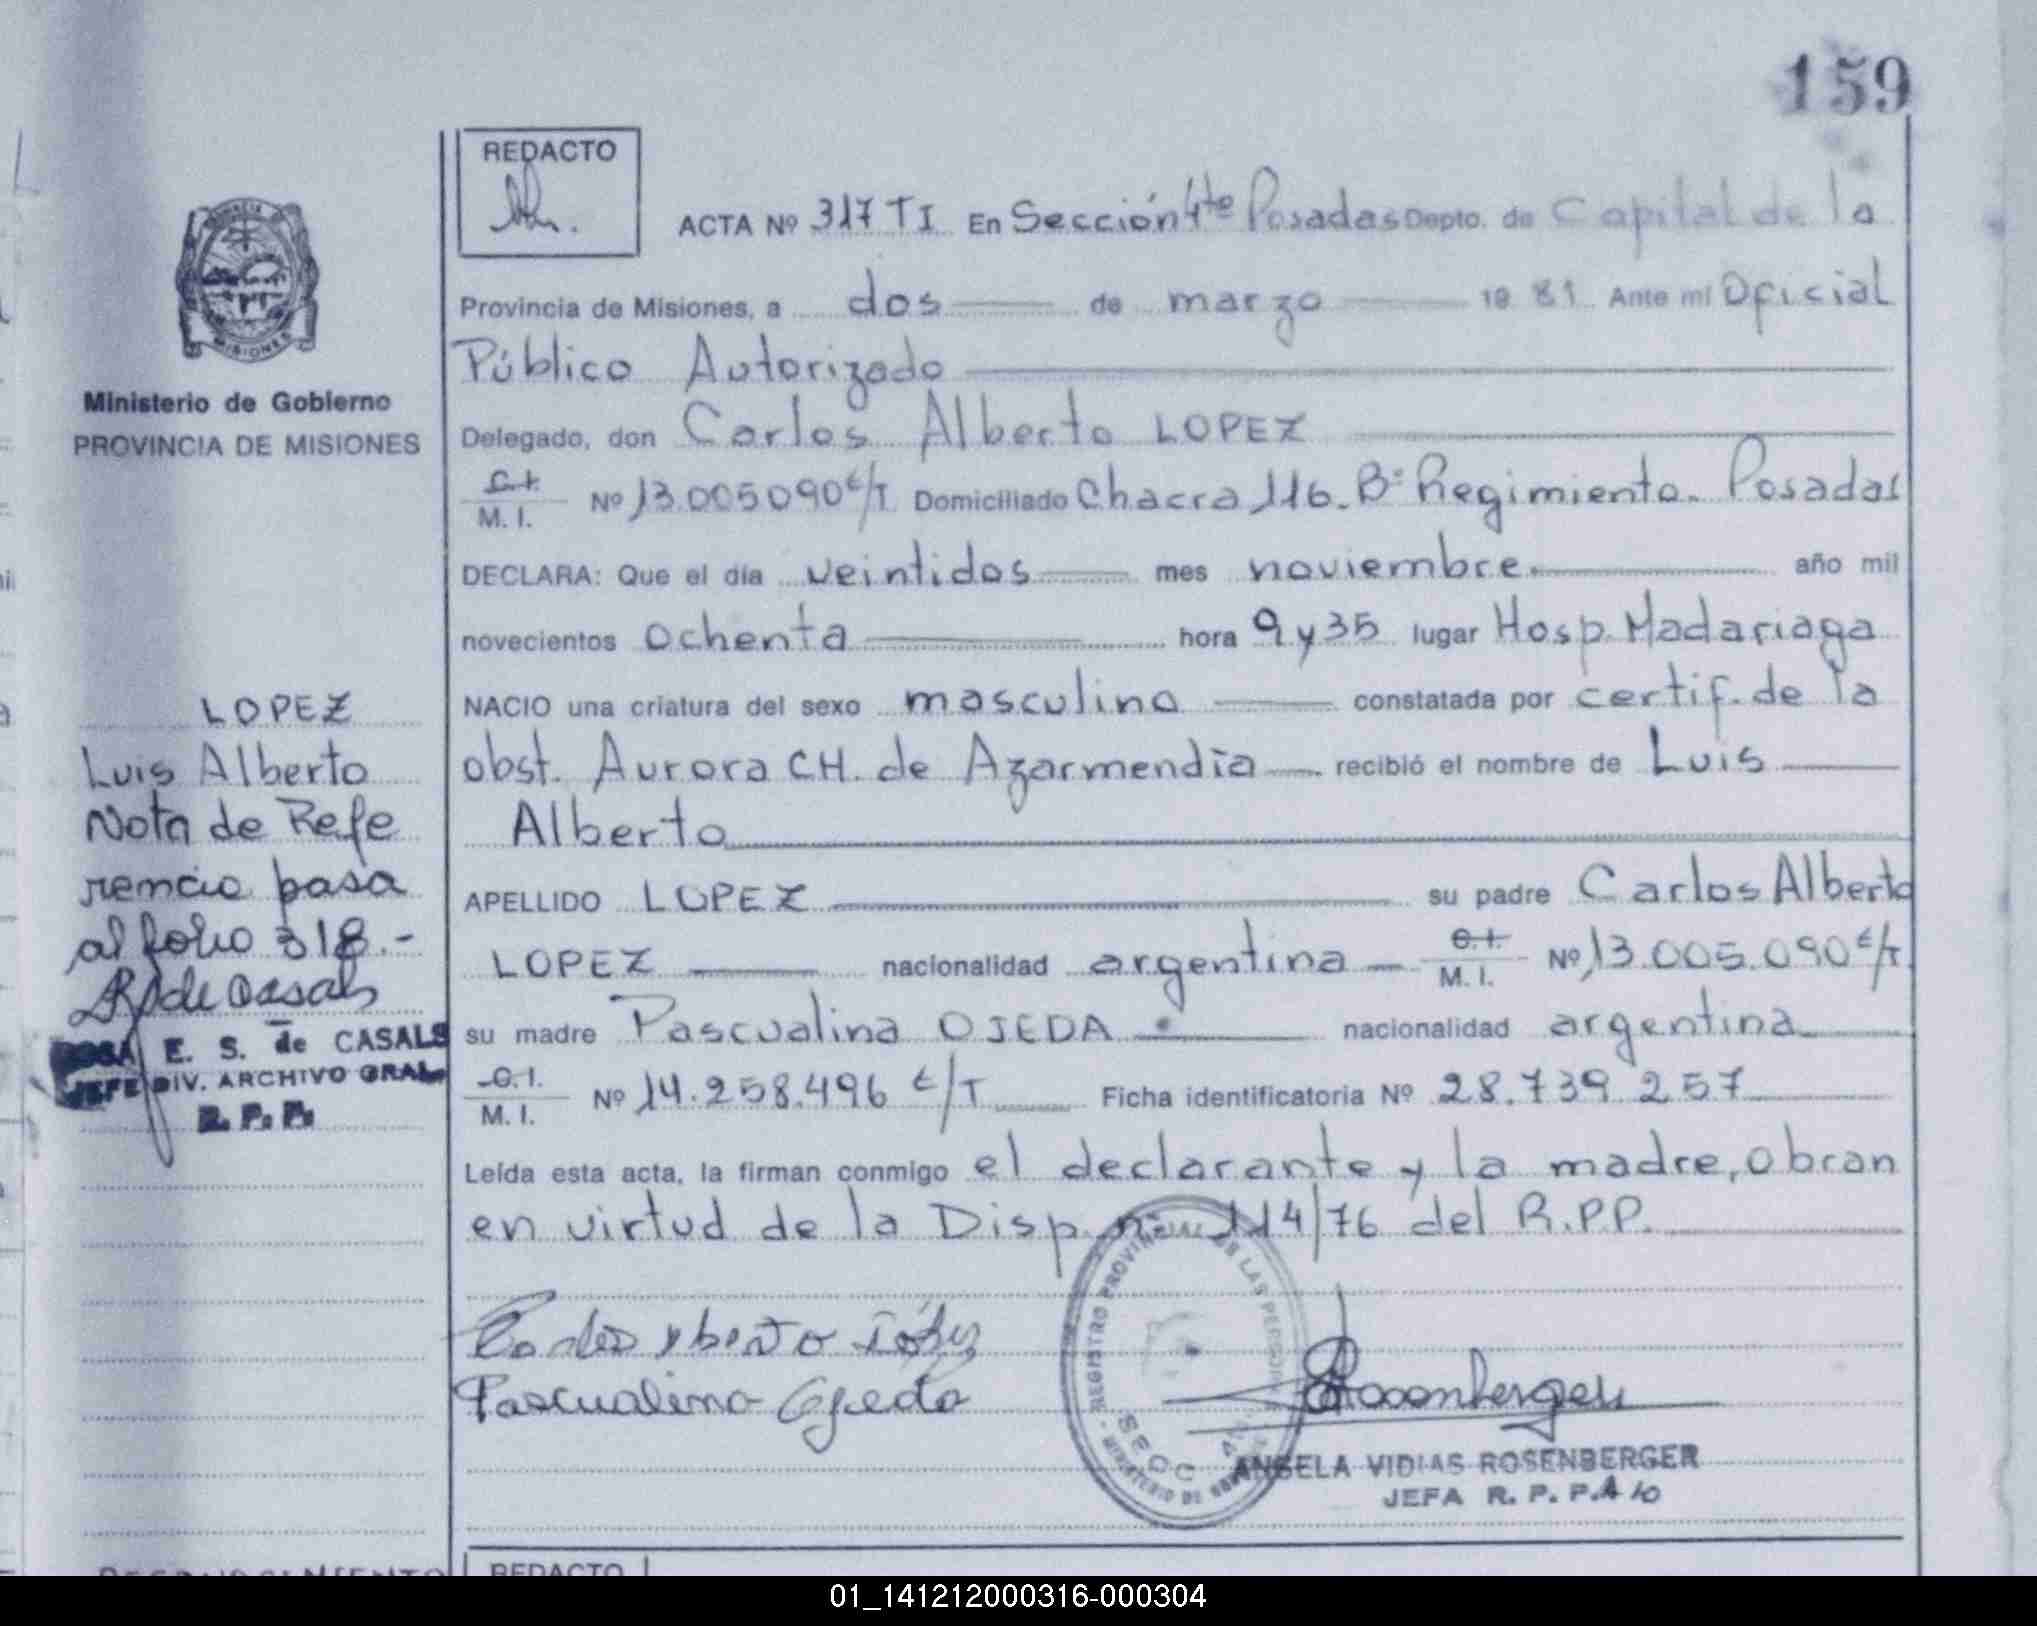 159
REDACTO
ACTA Nº 317 TI En Sección 4ta Posadas Depto. de Capital de la
Provincia de Misiones, a dos de marzo 19 81 Ante mí Oficial
Público Autorizado
Delegado, don Carlos Alberto LOPEZ
C.I.
M. I. Nº 13.005090 E/T Domiciliado Chacra 116. Bº Regimiento. Posadas
DECLARA: Que el día veintidos mes noviembre. año mil
novecientos ochenta hora 9 y 35 lugar Hosp. Madariaga
NACIO una criatura del sexo masculino constatada por certif. de la
obst. Aurora CH. de Azarmendia recibió el nombre de Luis
Alberto
APELLIDO LOPEZ su padre Carlos Alberto
LOPEZ nacionalidad argentina C.I.
M. I. Nº 13.005.090 E/T
su madre Pascualina OJEDA nacionalidad argentina
C.I.
M. I. Nº 14.258.496 E/T Ficha identificatoria Nº 28.739.257
Leída esta acta, la firman conmigo el declarante y la madre, obran
en virtud de la Disp. nº 114/76 del R.P.P.
Carlos Alberto López
Pascualina Ojeda
Rosenberger
REGISTRO PROVINCIAL DE LAS PERSONAS
MINISTERIO DE
SECC 4
ANGELA VIDIAS ROSENBERGER
JEFA R. P. P.
REDACTO
PROVINCIA DE
MISIONES
Ministerio de Gobierno
PROVINCIA DE MISIONES
LOPEZ
Luis Alberto
Nota de Refe
rencia pasa
al folio 318.-
R de Casals
ROSA E. S. de CASALS
JEFE DIV. ARCHIVO GRAL.
R. P. P.
RECONOCIMIENTO
01_141212000316-000304